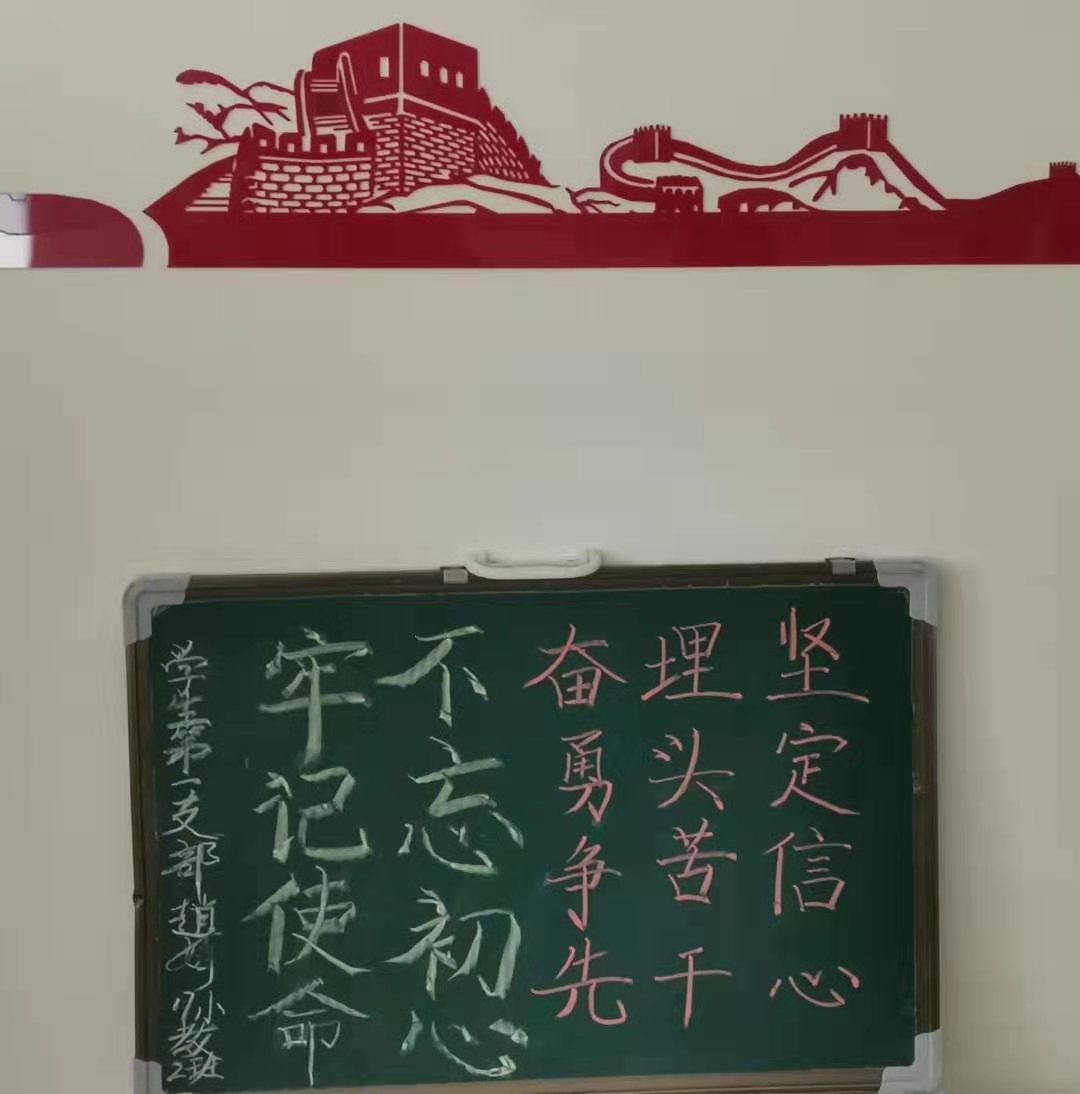 坚定信心
埋头苦干
奋勇争先
不忘初心
牢记使命
学生第一支部 赵 小教2班